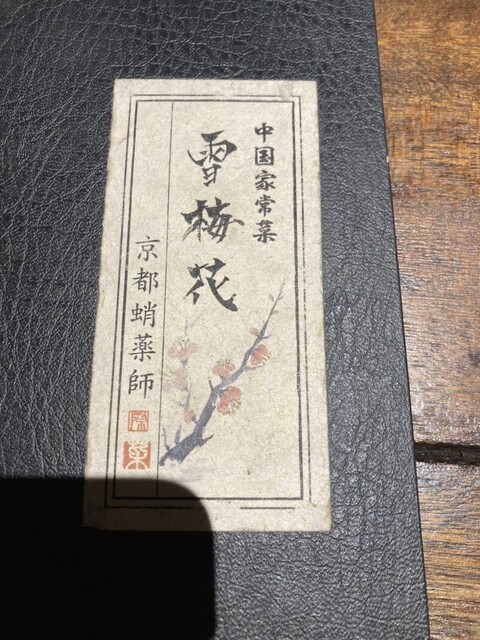 中国家常菜
雪梅花
京都蛸薬師
菜